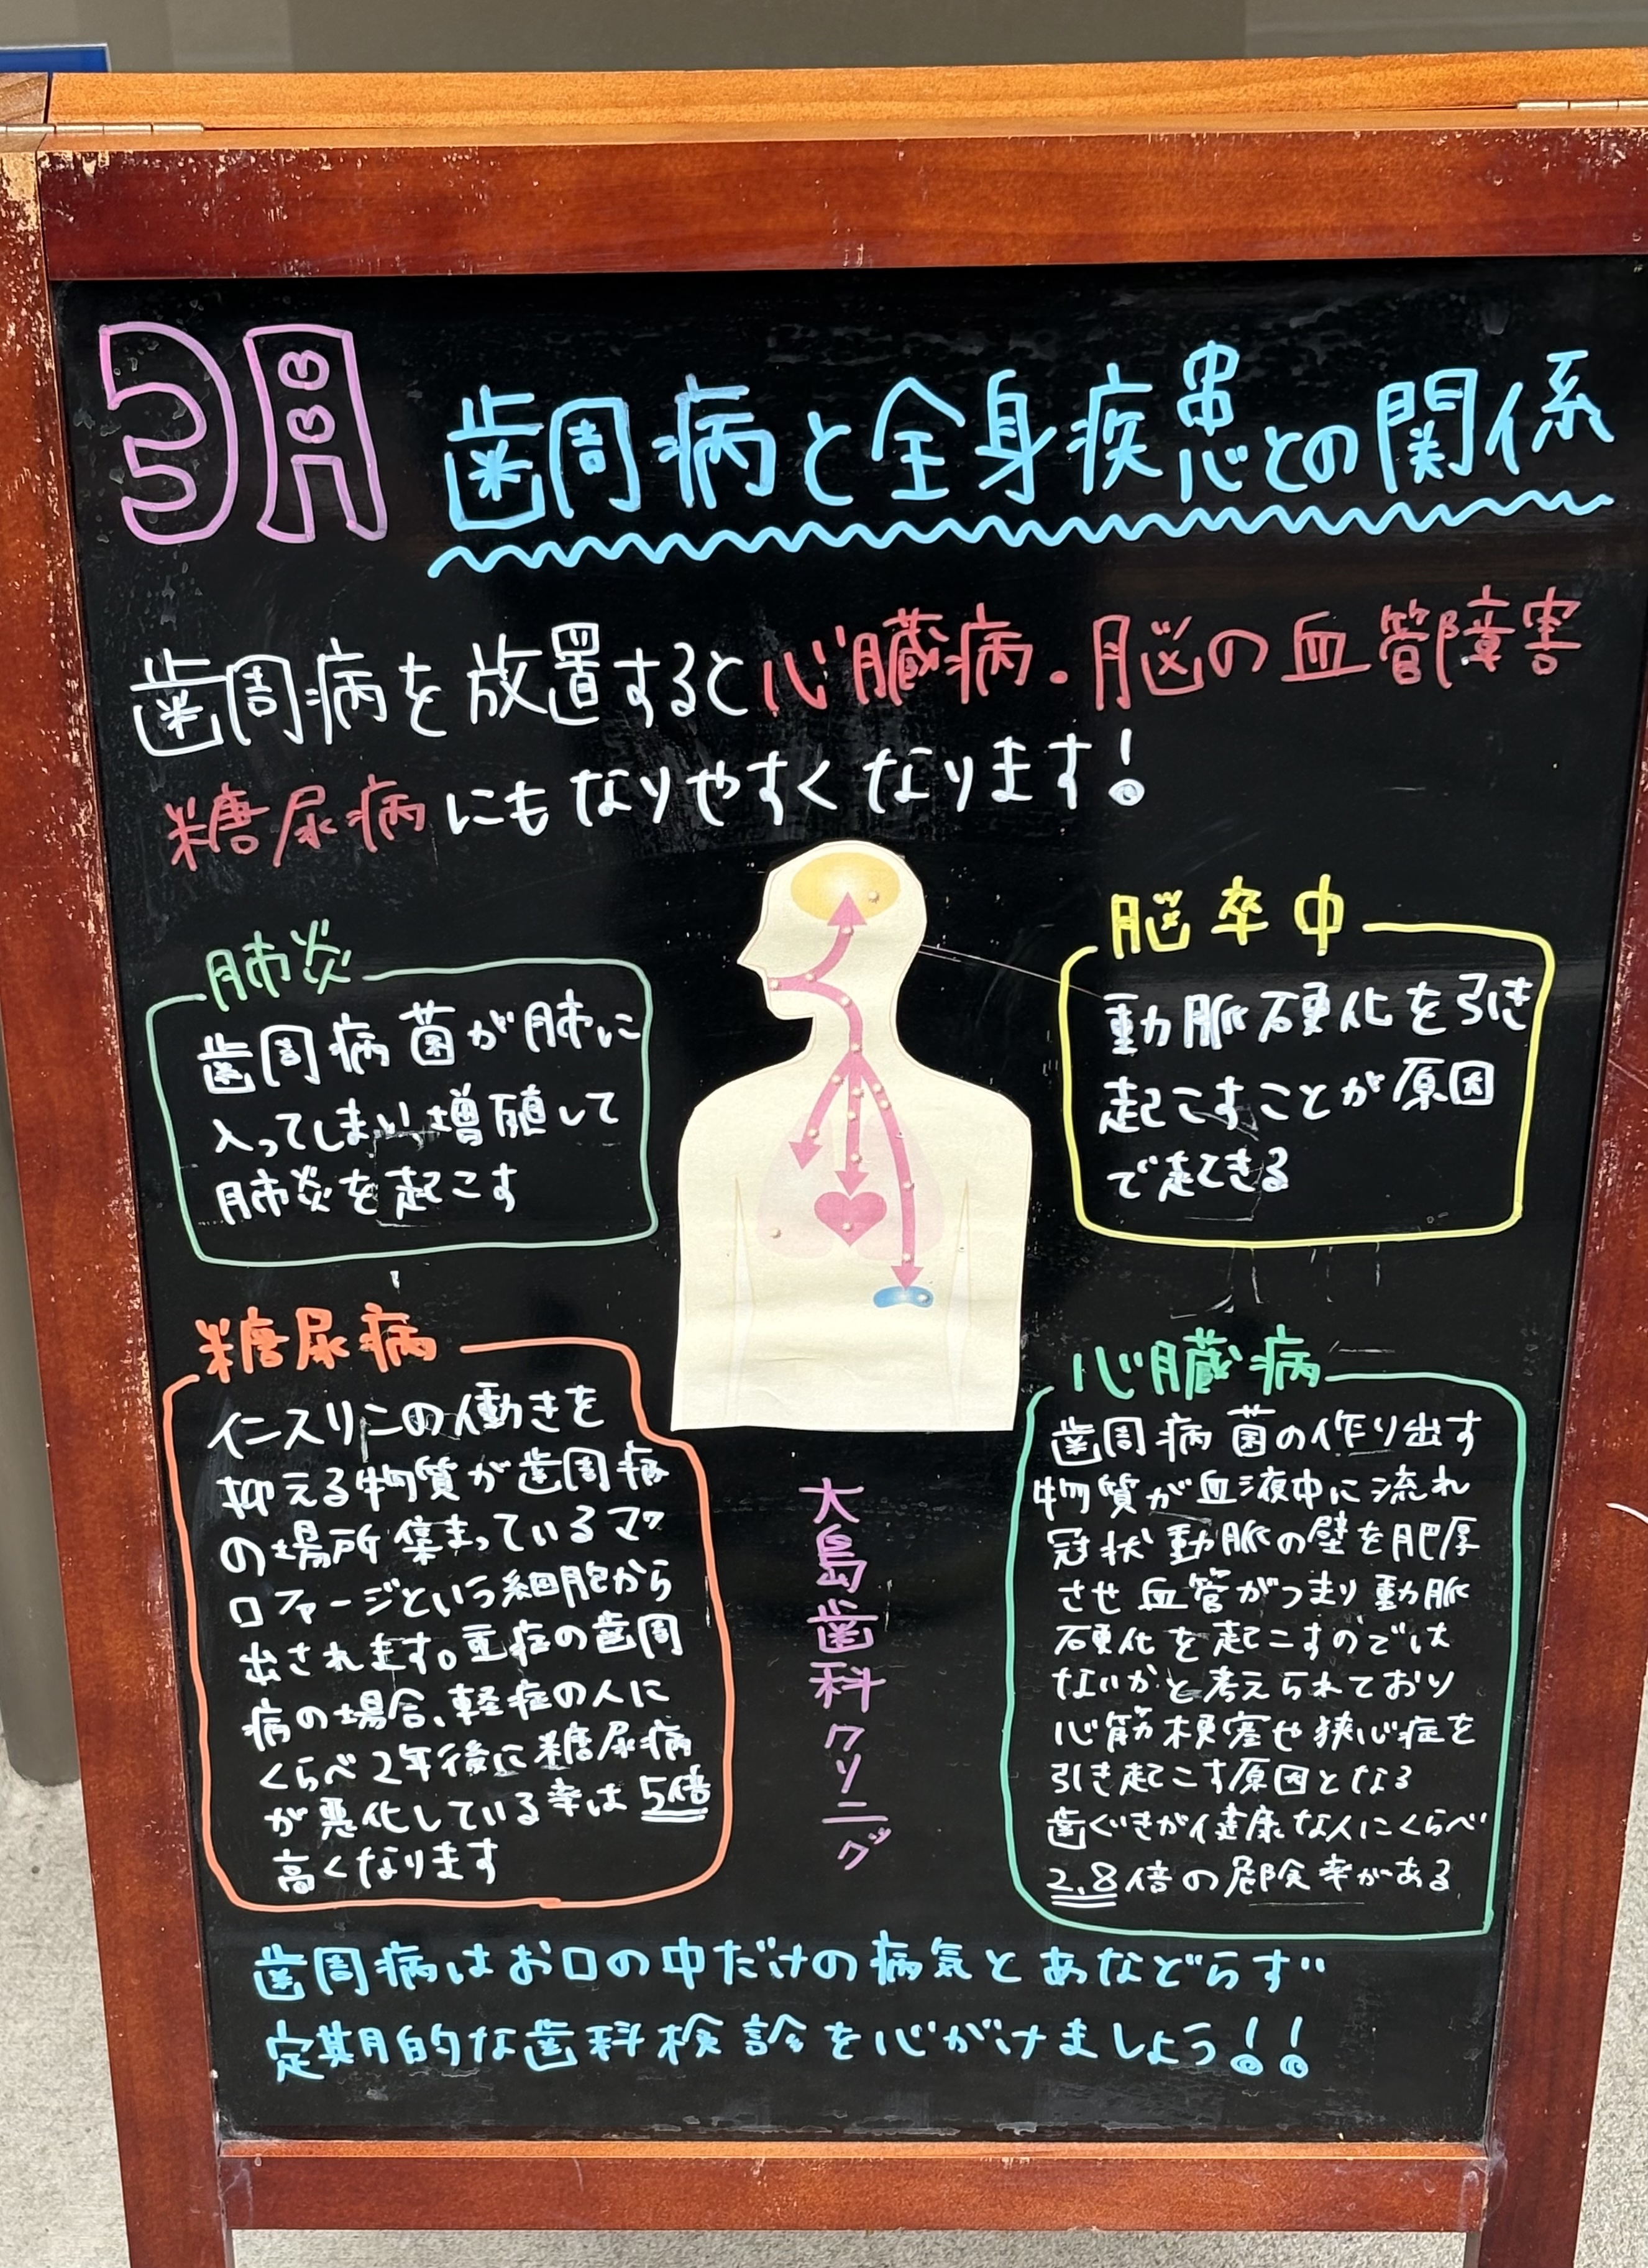 3月
歯周病と全身疾患との関係
歯周病を放置すると心臓病・脳の血管障害
糖尿病にもなりやすくなります!
肺炎
歯周病菌が肺に
入ってしまい増殖して
肺炎を起こす
脳卒中
動脈硬化を引き
起こすことが原因
で起きる
糖尿病
インスリンの働きを
抑える物質が歯周病
の場所集まっているマク
ロファージという細胞から
出されます。重症の歯周
病の場合、軽症の人に
くらべ2年後に糖尿病
が悪化している率は5倍
高くなります
大島歯科クリニック
心臓病
歯周病菌の作り出す
物質が血液中に流れ
冠状動脈の壁を肥厚
させ血管がつまり動脈
硬化を起こすのでは
ないかと考えられており
心筋梗塞や狭心症を
引き起こす原因となる
歯ぐきが健康な人にくらべ
2.8倍の危険率がある
歯周病はお口の中だけの病気とあなどらず
定期的な歯科検診を心がけましょう!!